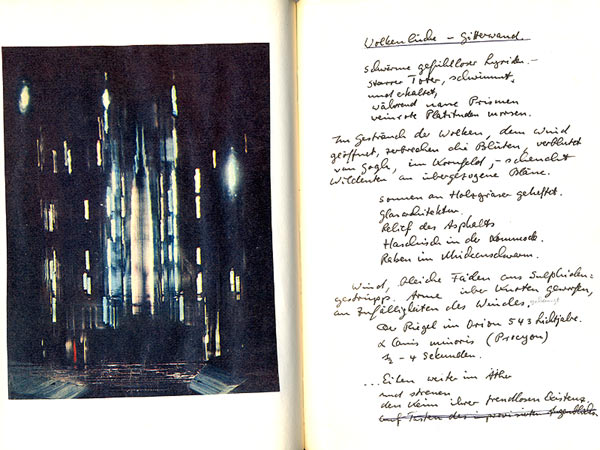 Wolkenlücke – Gitterwand.
Schwärme gefühlloser Hyriden. –
starrer Toter, schwimmt,
und erkaltet,
während nasse Prismen
weinrote Platituden morsen.
Im Gesträuch der Wolken, dem Wind
geöffnet, zerbrechen die Blüten, verblutet
van Gogh, im Kornfeld, – scheucht
Wildenten an übergezogene Bläue.
Sonnen an Holzgräser geheftet.
Glasarchitektur.
Relief des Asphalts
Haschisch in der Kommode.
Raben im Mückenschwarm.
Wind, bleiche Fäden aus
gestrüpp. Arme über geworfen,
an Zufälligkeiten des Windes.
Der Riegel im Orion 543 Lichtjahre.
α Canis minoris (Procyon)
½ – 4 Sekunden.
... Eilen weiter im Äther
und streuen
den Keim ihrer trendlosen Existenz
auf Tasten des improvisierten Augenblicks.